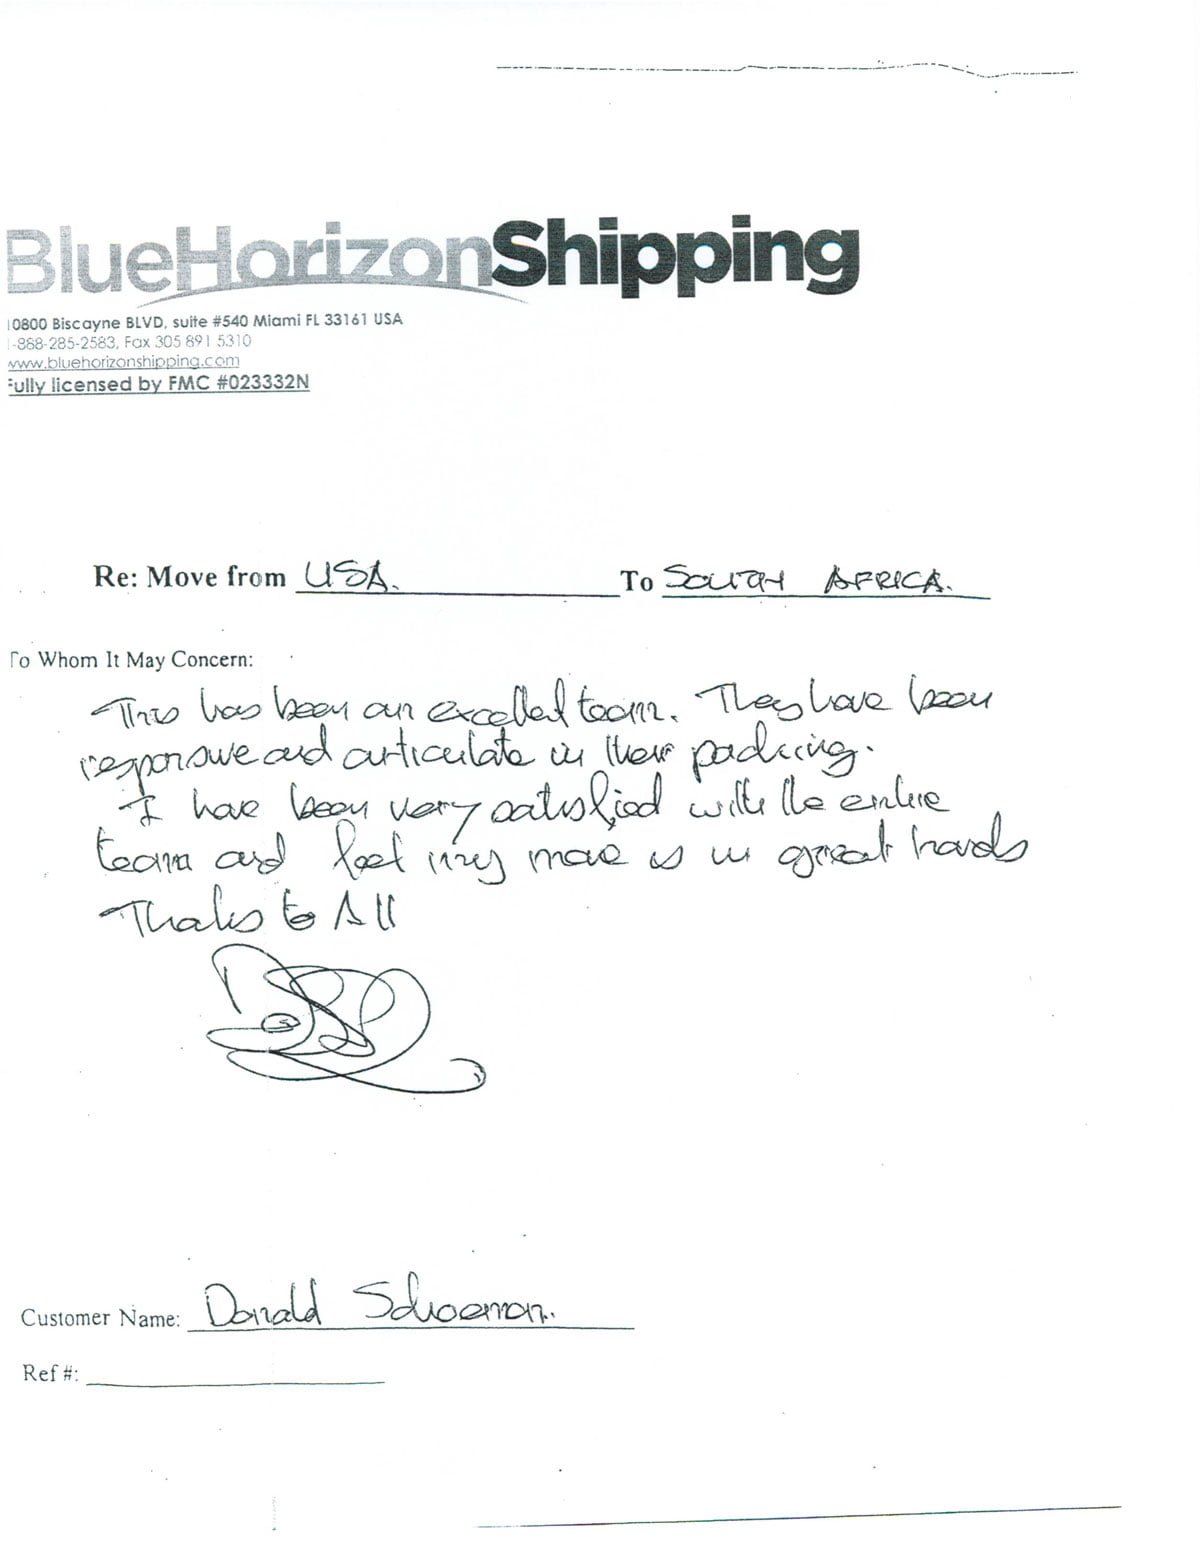 BlueHorizonShipping
10800 Biscayne BLVD, suite #540 Miami FL 33161 USA
1-888-285-2583, Fax 305 891 5310
www.bluehorizonshipping.com
Fully licensed by FMC #023332N
Re: Move from USA. To SOUTH AFRICA.
To Whom It May Concern:
This has been an excellent team. They have been
responsive and articulate in their packing.
I have been very satisfied with the entire
team and feel my move is in great hands
Thanks to All
Customer Name: Donald Schoeman.
Ref #: